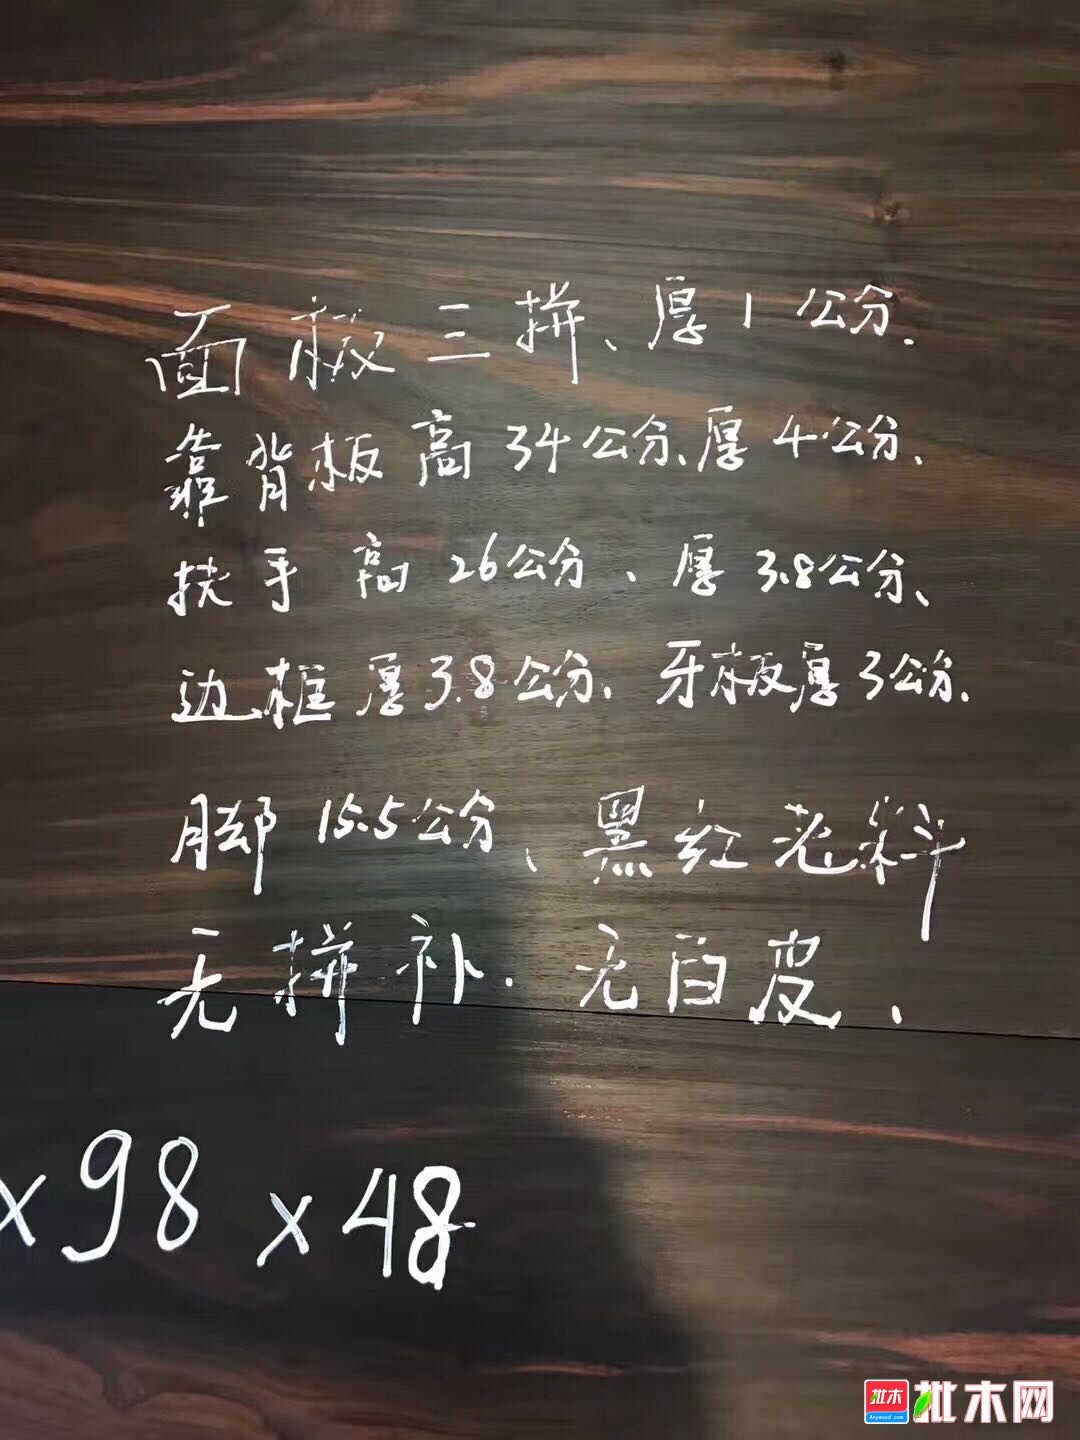 面板三拼、厚1公分.
靠背板高34公分、厚4公分、
扶手高26公分、厚3.8公分、
边框厚3.8公分、牙板厚3公分.
脚15.5公分、黑红老料
无拼补.无白皮、
x98x48
批木 批木网
Anywood.com